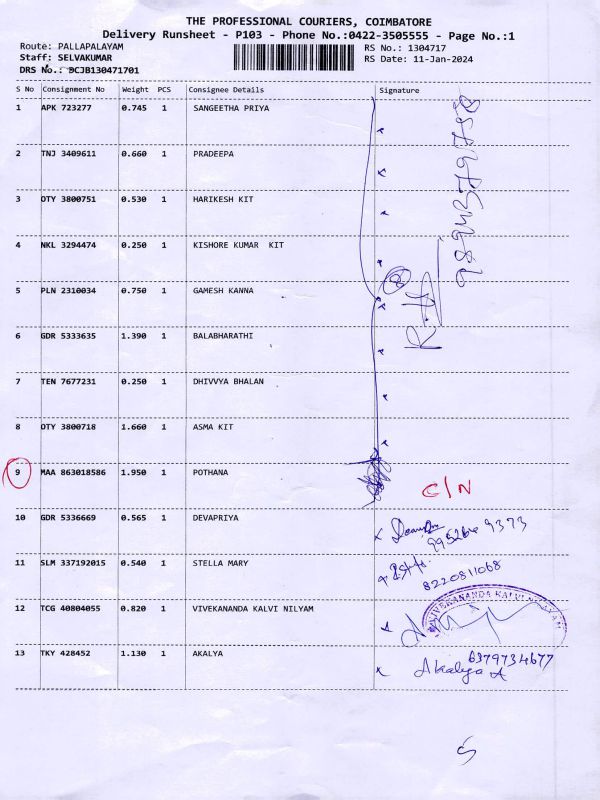 THE PROFESSIONAL COURIERS, COIMBATORE
Delivery Runsheet - P103 - Phone No.:0422-3505555 - Page No.:1
Route: PALLAPALAYAM RS No.: 1304717
Staff: SELVAKUMAR RS Date: 11-Jan-2024
DRS No.: DCJB130471701
S No Consignment No Weight PCS Consignee Details Signature
1 APK 723277 0.745 1 SANGEETHA PRIYA
2 TNJ 3409611 0.660 1 PRADEEPA
3 OTY 3800751 0.530 1 HARIKESH KIT
4 NKL 3294474 0.250 1 KISHORE KUMAR KIT
5 PLN 2310034 0.750 1 GAMESH KANNA
6 GDR 5333635 1.390 1 BALABHARATHI
7 TEN 7677231 0.250 1 DHIVVYA BHALAN
8 OTY 3800718 1.660 1 ASMA KIT
9 MAA 863018586 1.950 1 POTHANA
C/N
10 GDR 5336669 0.565 1 DEVAPRIYA
11 SLM 337192015 0.540 1 STELLA MARY
8220811068
12 TCG 40804055 0.820 1 VIVEKANANDA KALVI NILYAM
VIVEKANANDA KALVI
13 TKY 428452 1.130 1 AKALYA
6379734677
Akalya A